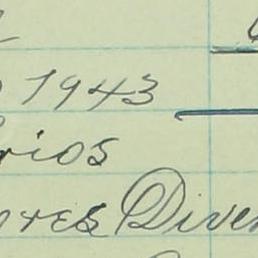 1943
rios
ores Diver